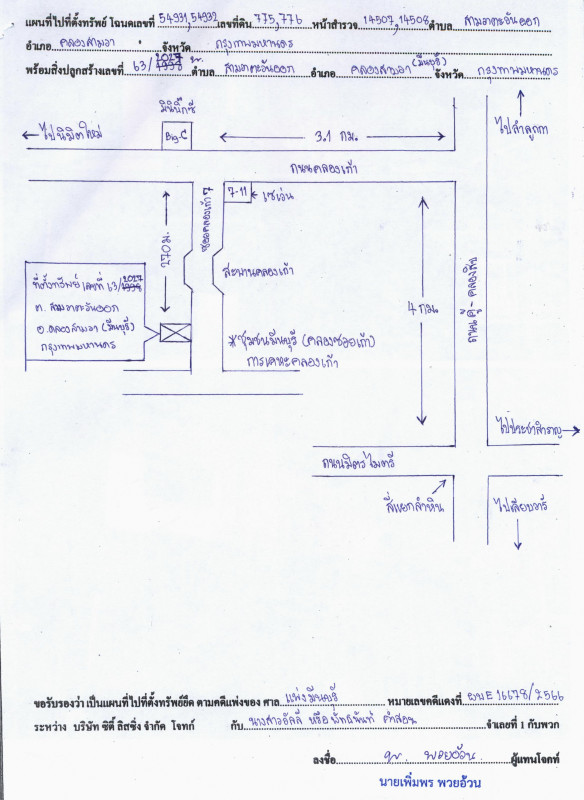 แผนที่ไปที่ตั้งทรัพย์ โฉนดเลขที่ 54931,54932 เลขที่ดิน 775,776 หน้าสำรวจ 14507,14508 ตำบล สามวาตะวันออก
อำเภอ คลองสามวา จังหวัด กรุงเทพมหานคร
พร้อมสิ่งปลูกสร้างเลขที่ 63/1998 2027 ตำบล สามวาตะวันออก อำเภอ คลองสามวา (มีนบุรี) จังหวัด กรุงเทพมหานคร
มินิบิ๊กซี
Big-C
ไปนิมิตใหม่
3.1 กม.
ไปลำลูกกา
ถนนคลองเก้า
7-11
เซเว่น
ซอยคลองเก้า 7
270 ม.
สะพานคลองเก้า
4 กม
ถนนคู้-คลองสิบ
ที่ตั้งทรัพย์ เลขที่ 63/1998 2027
ต. สามวาตะวันออก
อ.คลองสามวา (มีนบุรี)
กรุงเทพมหานคร
*ชุมชนมีนบุรี (คลองซอยเก้า)
การเคหะคลองเก้า
ไปประชาสำราญ
ถนนมิตรไมตรี
สี่แยกลำหิน
ไปเลียบวารี
ขอรับรองว่า เป็นแผนที่ไปที่ตั้งทรัพย์ยึด ตามคดีแพ่งของ ศาล แพ่งมีนบุรี หมายเลขคดีแดงที่ ผบE 16678/2566
ระหว่าง บริษัท ซิตี้ ลิสซิ่ง จำกัด โจทก์ กับ นางสาวอัลลี่ หรือ พัทธนันท์ คำสอน จำเลยที่ 1 กับพวก
ลงชื่อ พวยอ้วน ผู้แทนโจทก์
นายเพิ่มพร พวยอ้วน